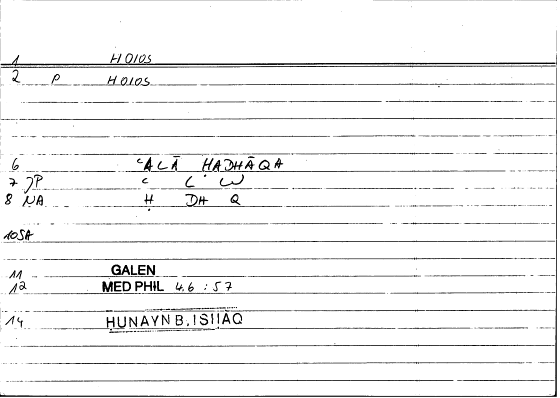 1 HOIOS
2 P HOIOS
6 ʿALĀ ḤADHĀQA
7 JP ʿ L W
8 NA Ḥ DH Q
10SA
11 GALEN
12 MED PHIL 4.6 : 57
14 HUNAYN B. ISHAQ